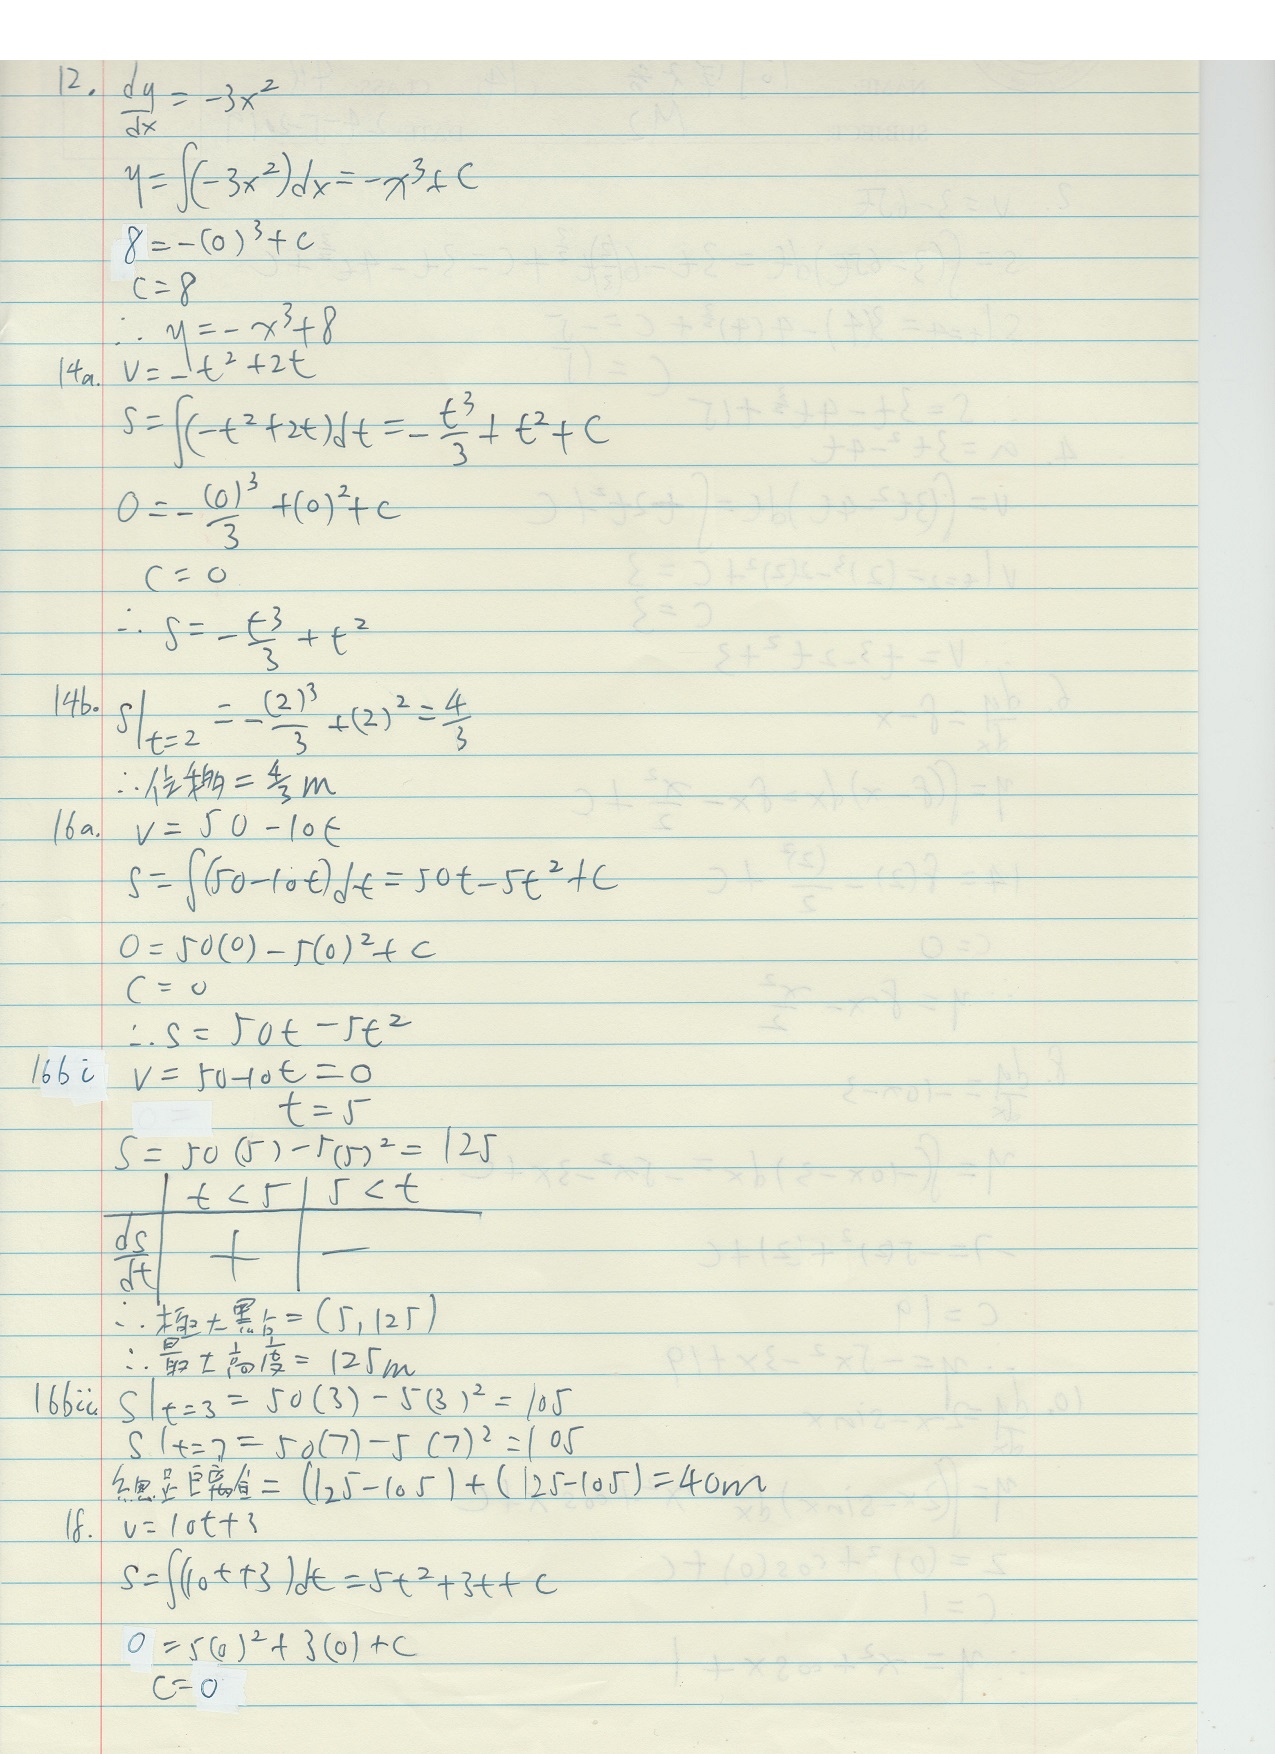 12. dy/dx = -3x²
y = ∫(-3x²)dx = -x³ + C
8 = -(0)³ + C
C = 8
∴ y = -x³ + 8
14a. v = -t² + 2t
S = ∫(-t² + 2t)dt = -t³/3 + t² + C
0 = -(0)³/3 + (0)² + C
C = 0
∴ S = -t³/3 + t²
14b. S|t=2 = -(2)³/3 + (2)² = 4/3
∴ 位移 = 4/3 m
16a. v = 50 - 10t
S = ∫(50 - 10t)dt = 50t - 5t² + C
0 = 50(0) - 5(0)² + C
C = 0
∴ S = 50t - 5t²
16b i v = 50 - 10t = 0
t = 5
S = 50(5) - 5(5)² = 125
t < 5 | 5 < t
ds/dt | + | −
∴ 極大點 = (5, 125)
∴ 最大高度 = 125m
16b ii. S|t=3 = 50(3) - 5(3)² = 105
S|t=7 = 50(7) - 5(7)² = 105
總距離值 = (125-105) + (125-105) = 40m
18. v = 10t + 3
S = ∫(10t + 3)dt = 5t² + 3t + C
0 = 5(0)² + 3(0) + C
C = 0